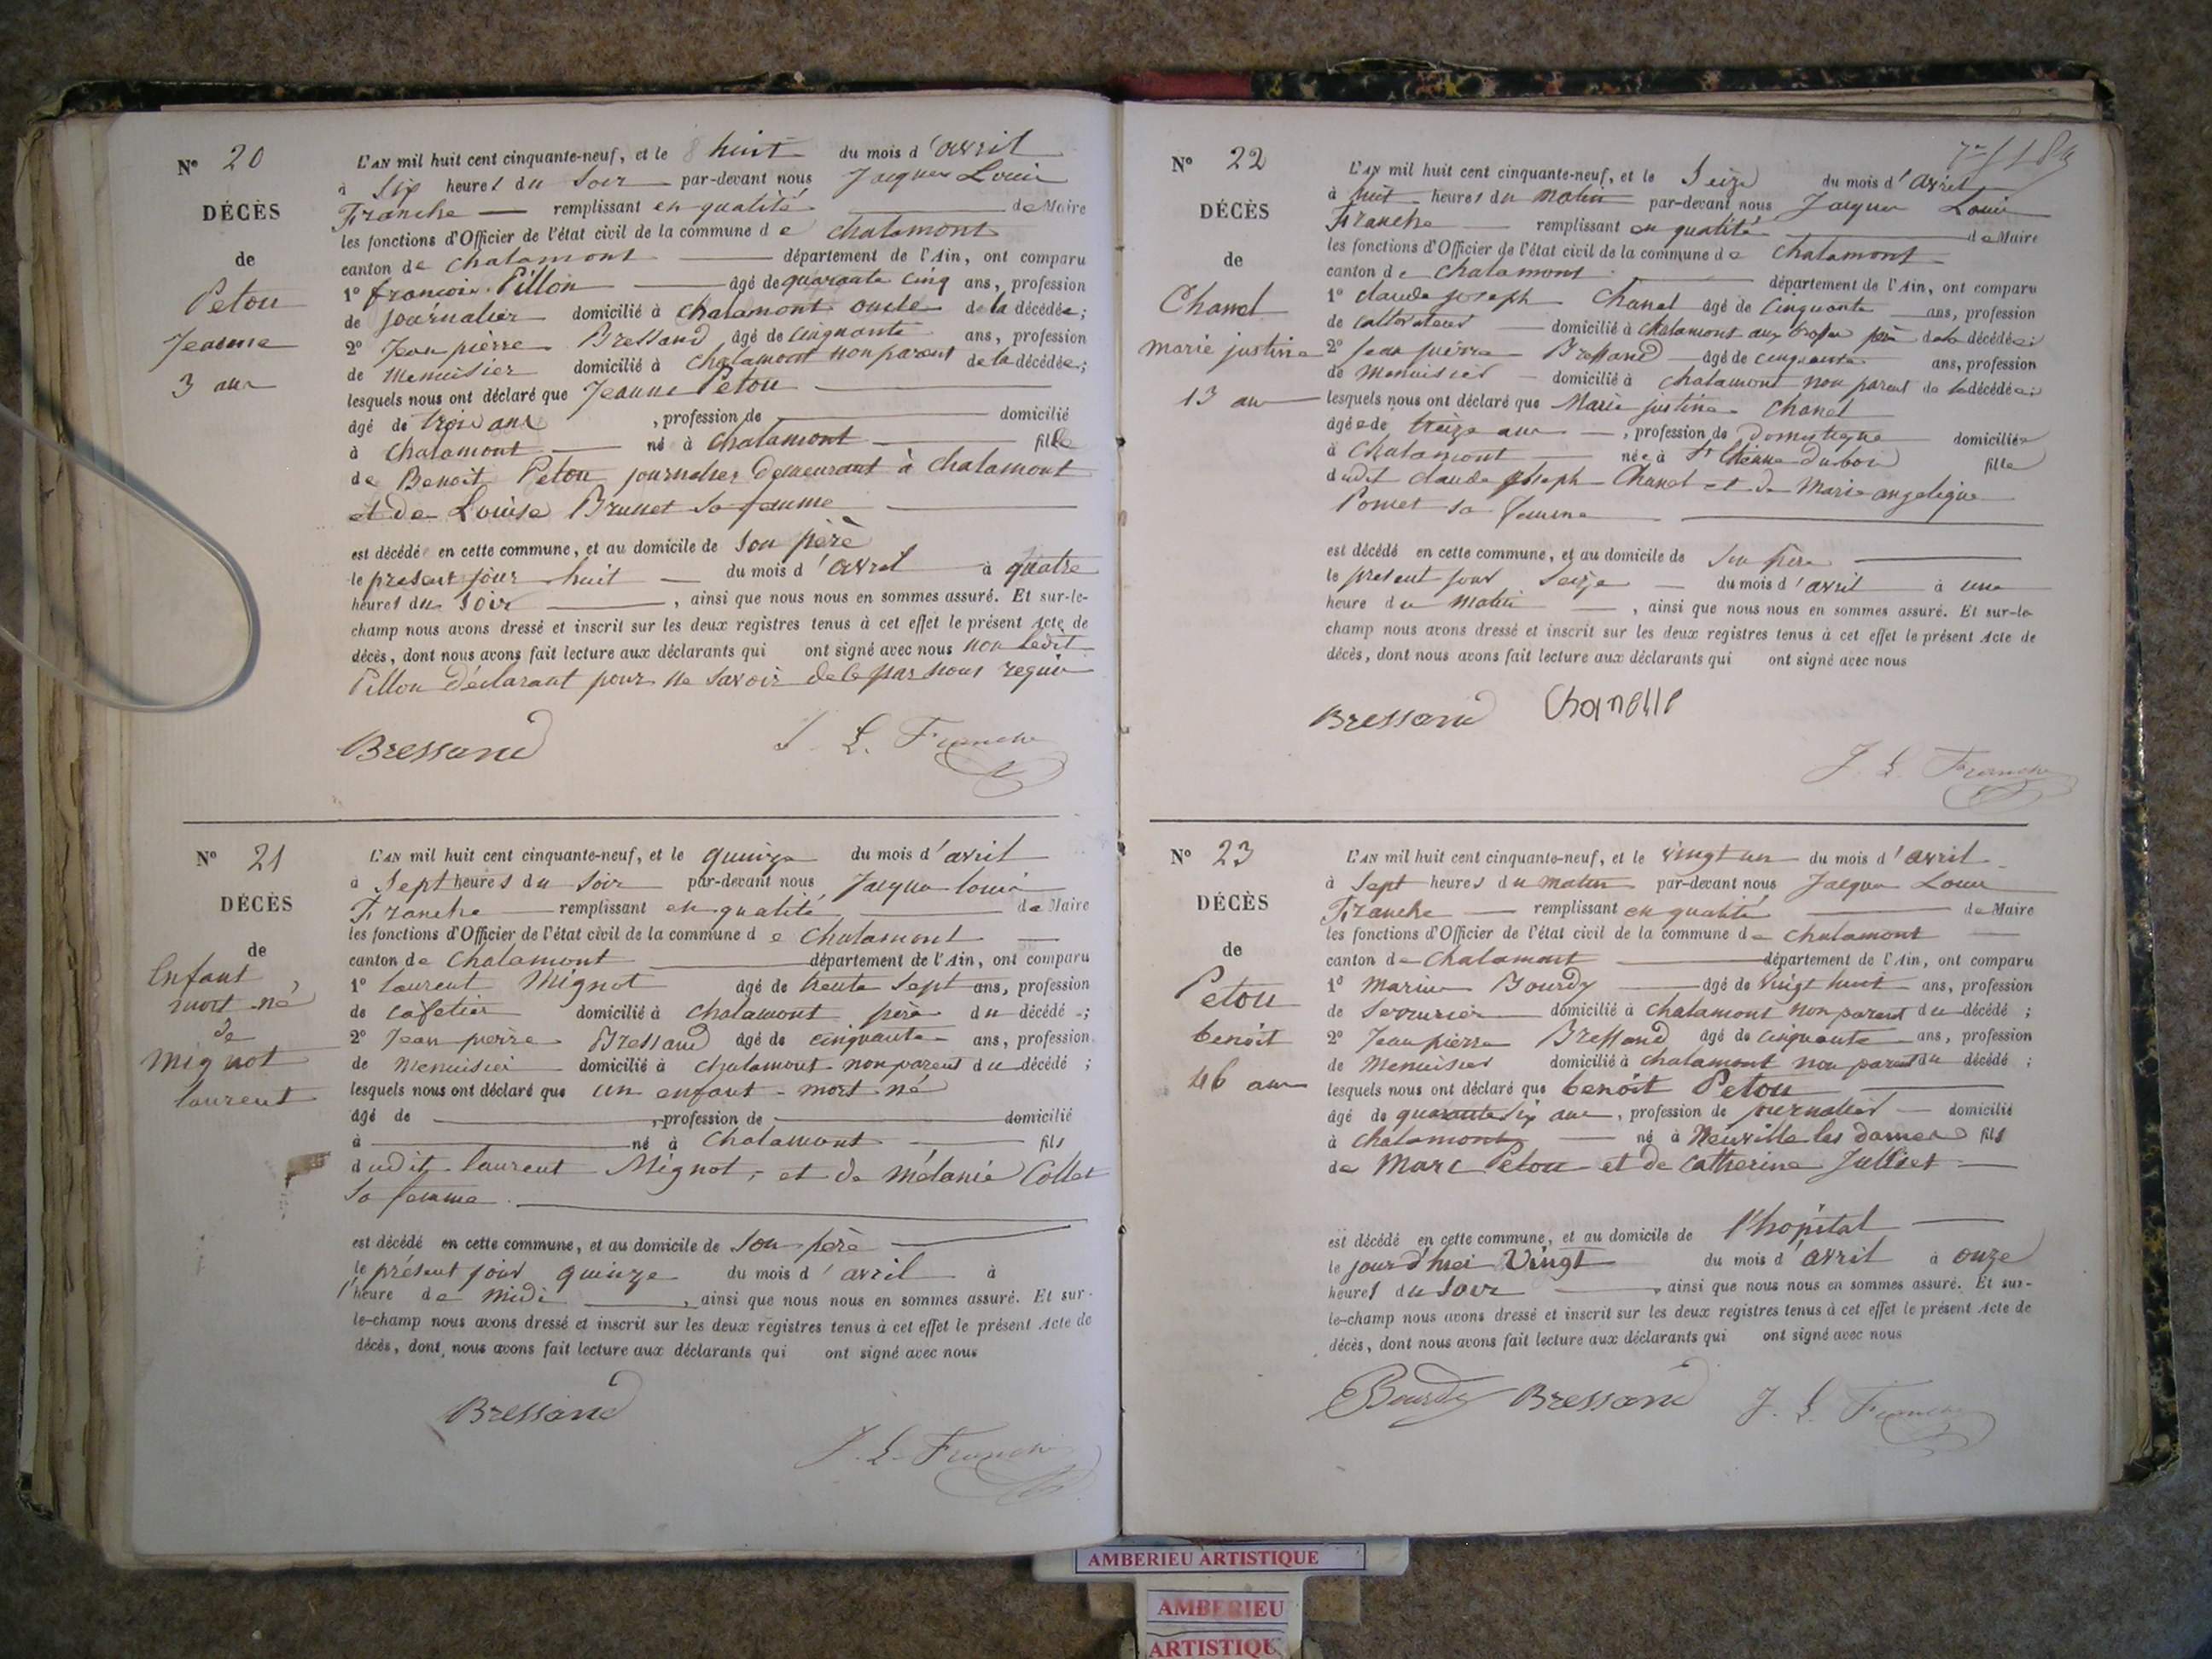 Nº 20
DÉCÈS
de
Petou
Jeanne
3 ans
L'AN mil huit cent cinquante-neuf, et le huit du mois d'avril
à Six heures du Soir par-devant nous Jacques Louis
Franche remplissant en qualité de Maire
les fonctions d'Officier de l'état civil de la commune de chalamont
canton de chalamont département de l'Ain, ont comparu
1º françois Pillon âgé de quarante cinq ans, profession
de journalier domicilié à chalamont oncle de la décédée;
2º Jean pierre Bressand âgé de cinquante ans, profession
de Menuisier domicilié à chalamont non parent de la décédée;
lesquels nous ont déclaré que Jeanne Petou
âgé de trois ans, profession de domicilié
à chalamont né à chalamont fille
de Benoit Petou journalier demeurant à chalamont
et de Louise Brunet sa femme
est décédé en cette commune, et au domicile de son père
le présent jour huit du mois d'avril à quatre
heures du soir, ainsi que nous nous en sommes assuré. Et sur-le-
champ nous avons dressé et inscrit sur les deux registres tenus à cet effet le présent Acte de
décès, dont nous avons fait lecture aux déclarants qui ont signé avec nous non ledit
Pillon déclarant pour ne savoir de ce par nous requis
Bressand J. L. Franche
Nº 21
DÉCÈS
de
Enfant
mort-né
de
Mignot
laurent
L'AN mil huit cent cinquante-neuf, et le quinze du mois d'avril
à Sept heures du soir par-devant nous Jacques louis
Franche remplissant en qualité de Maire
les fonctions d'Officier de l'état civil de la commune de chalamont
canton de chalamont département de l'Ain, ont comparu
1º laurent Mignot âgé de trente sept ans, profession
de cafetier domicilié à chalamont père du décédé;
2º Jean pierre Bressand âgé de cinquante ans, profession
de Menuisier domicilié à chalamont non parent du décédé;
lesquels nous ont déclaré que un enfant mort né
âgé de, profession de domicilié
à né à chalamont fils
dudit laurent Mignot, et de mélanie Collet
sa femme
est décédé en cette commune, et au domicile de son père
le présent jour quinze du mois d'avril à
l'heure de midi, ainsi que nous nous en sommes assuré. Et sur-
le-champ nous avons dressé et inscrit sur les deux registres tenus à cet effet le présent Acte de
décès, dont nous avons fait lecture aux déclarants qui ont signé avec nous
Bressand
J. L. Franche
Nº 22
DÉCÈS
de
Chanel
marie justine
13 ans
L'AN mil huit cent cinquante-neuf, et le Seize du mois d'avril
à huit heures du matin par-devant nous Jacques Louis
Franche remplissant en qualité de Maire
les fonctions d'Officier de l'état civil de la commune de chalamont
canton de chalamont département de l'Ain, ont comparu
1º claude joseph Chanel âgé de cinquante ans, profession
de cultivateur domicilié à chalamont aux père de la décédée;
2º Jean pierre Bressand âgé de cinquante ans, profession
de Menuisier domicilié à chalamont non parent de la décédée;
lesquels nous ont déclaré que Marie justine Chanel
âgée de treize ans, profession de Domestique domiciliée
à Chalamont née à St Etienne du bois fille
dudit claude joseph Chanel et de Marie angelique
Pomet sa femme
est décédé en cette commune, et au domicile de son père
le présent jour seize du mois d'avril à une
heure du matin, ainsi que nous nous en sommes assuré. Et sur-le-
champ nous avons dressé et inscrit sur les deux registres tenus à cet effet le présent Acte de
décès, dont nous avons fait lecture aux déclarants qui ont signé avec nous
Bressand Chanelle
J. L. Franche
Nº 23
DÉCÈS
de
Petou
benoit
46 ans
L'AN mil huit cent cinquante-neuf, et le vingt un du mois d'avril
à Sept heures du matin par-devant nous Jacques Louis
Franche remplissant en qualité de Maire
les fonctions d'Officier de l'état civil de la commune de chalamont
canton de chalamont département de l'Ain, ont comparu
1º Marius Bourdy âgé de vingt huit ans, profession
de Serrurier domicilié à chalamont non parent du décédé;
2º Jean pierre Bressand âgé de cinquante ans, profession
de Menuisier domicilié à chalamont non parent du décédé;
lesquels nous ont déclaré que benoit Petou
âgé de quarante six ans, profession de journalier domicilié
à chalamont né à Neuville les dames fils
de Marc Petou et de catherine Julliet
est décédé en cette commune, et au domicile de l'hopital
le jour d'hier Vingt du mois d'avril à onze
heures du soir, ainsi que nous nous en sommes assuré. Et sur-
le-champ nous avons dressé et inscrit sur les deux registres tenus à cet effet le présent Acte de
décès, dont nous avons fait lecture aux déclarants qui ont signé avec nous
Bourdy Bressand J. L. Franche
AMBERIEU ARTISTIQUE
AMBERIEU
ARTISTIQUE